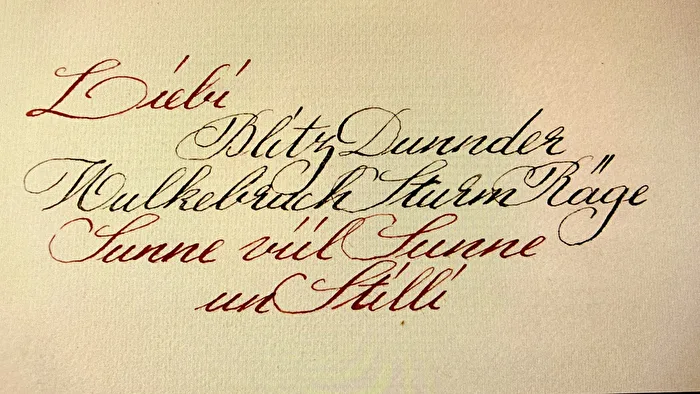 Liebi
Blitz Dunnder
Wulkebruch Sturm Räge
Sunne viil Sunne
un Stilli